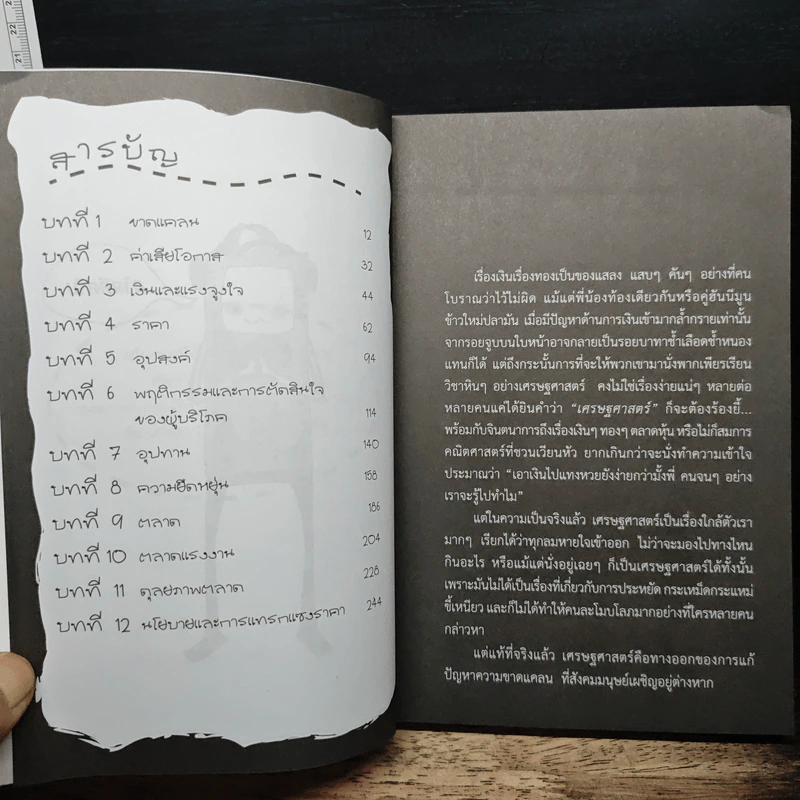 21 22
สารบัญ
บทที่ 1 ขาดแคลน 12
บทที่ 2 ค่าเสียโอกาส 32
บทที่ 3 เงินและแรงจูงใจ 44
บทที่ 4 ราคา 62
บทที่ 5 อุปสงค์ 94
บทที่ 6 พฤติกรรมและการตัดสินใจ
ของผู้บริโภค 114
บทที่ 7 อุปทาน 140
บทที่ 8 ความยืดหยุ่น 158
บทที่ 9 ตลาด 186
บทที่ 10 ตลาดแรงงาน 204
บทที่ 11 ดุลยภาพตลาด 228
บทที่ 12 นโยบายและการแทรกแซงราคา 244
เรื่องเงินเรื่องทองเป็นของแสลง แสบๆ คันๆ อย่างที่คน
โบราณว่าไว้ไม่ผิด แม้แต่พี่น้องท้องเดียวกันหรือคู่ฮันนีมูน
ข้าวใหม่ปลามัน เมื่อมีปัญหาด้านการเงินเข้ามากล้ำกรายเท่านั้น
จากรอยจูบบนใบหน้าอาจกลายเป็นรอยบาทาช้ำเลือดช้ำหนอง
แทนก็ได้ แต่ถึงกระนั้นการที่จะให้พวกเขามานั่งพากเพียรเรียน
วิชาหินๆ อย่างเศรษฐศาสตร์ คงไม่ใช่เรื่องง่ายแน่ๆ หลายต่อ
หลายคนแค่ได้ยินคำว่า “เศรษฐศาสตร์” ก็จะต้องร้องยี้...
พร้อมกับจินตนาการถึงเรื่องเงินๆ ทองๆ ตลาดหุ้น หรือไม่ก็สมการ
คณิตศาสตร์ที่ชวนเวียนหัว ยากเกินกว่าจะนั่งทำความเข้าใจ
ประมาณว่า “เอาเงินไปแทงหวยยังง่ายกว่ามั้งพี่ คนจนๆ อย่าง
เราจะรู้ไปทำไม”
แต่ในความเป็นจริงแล้ว เศรษฐศาสตร์เป็นเรื่องใกล้ตัวเรา
มากๆ เรียกได้ว่าทุกลมหายใจเข้าออก ไม่ว่าจะมองไปทางไหน
กินอะไร หรือแม้แต่นั่งอยู่เฉยๆ ก็เป็นเศรษฐศาสตร์ได้ทั้งนั้น
เพราะมันไม่ได้เป็นเรื่องที่เกี่ยวกับการประหยัด กระเหม็ดกระแหม่
ขี้เหนียว และก็ไม่ได้ทำให้คนละโมบโลภมากอย่างที่ใครหลายคน
กล่าวหา
แต่แท้ที่จริงแล้ว เศรษฐศาสตร์คือทางออกของการแก้
ปัญหาความขาดแคลน ที่สังคมมนุษย์เผชิญอยู่ต่างหาก